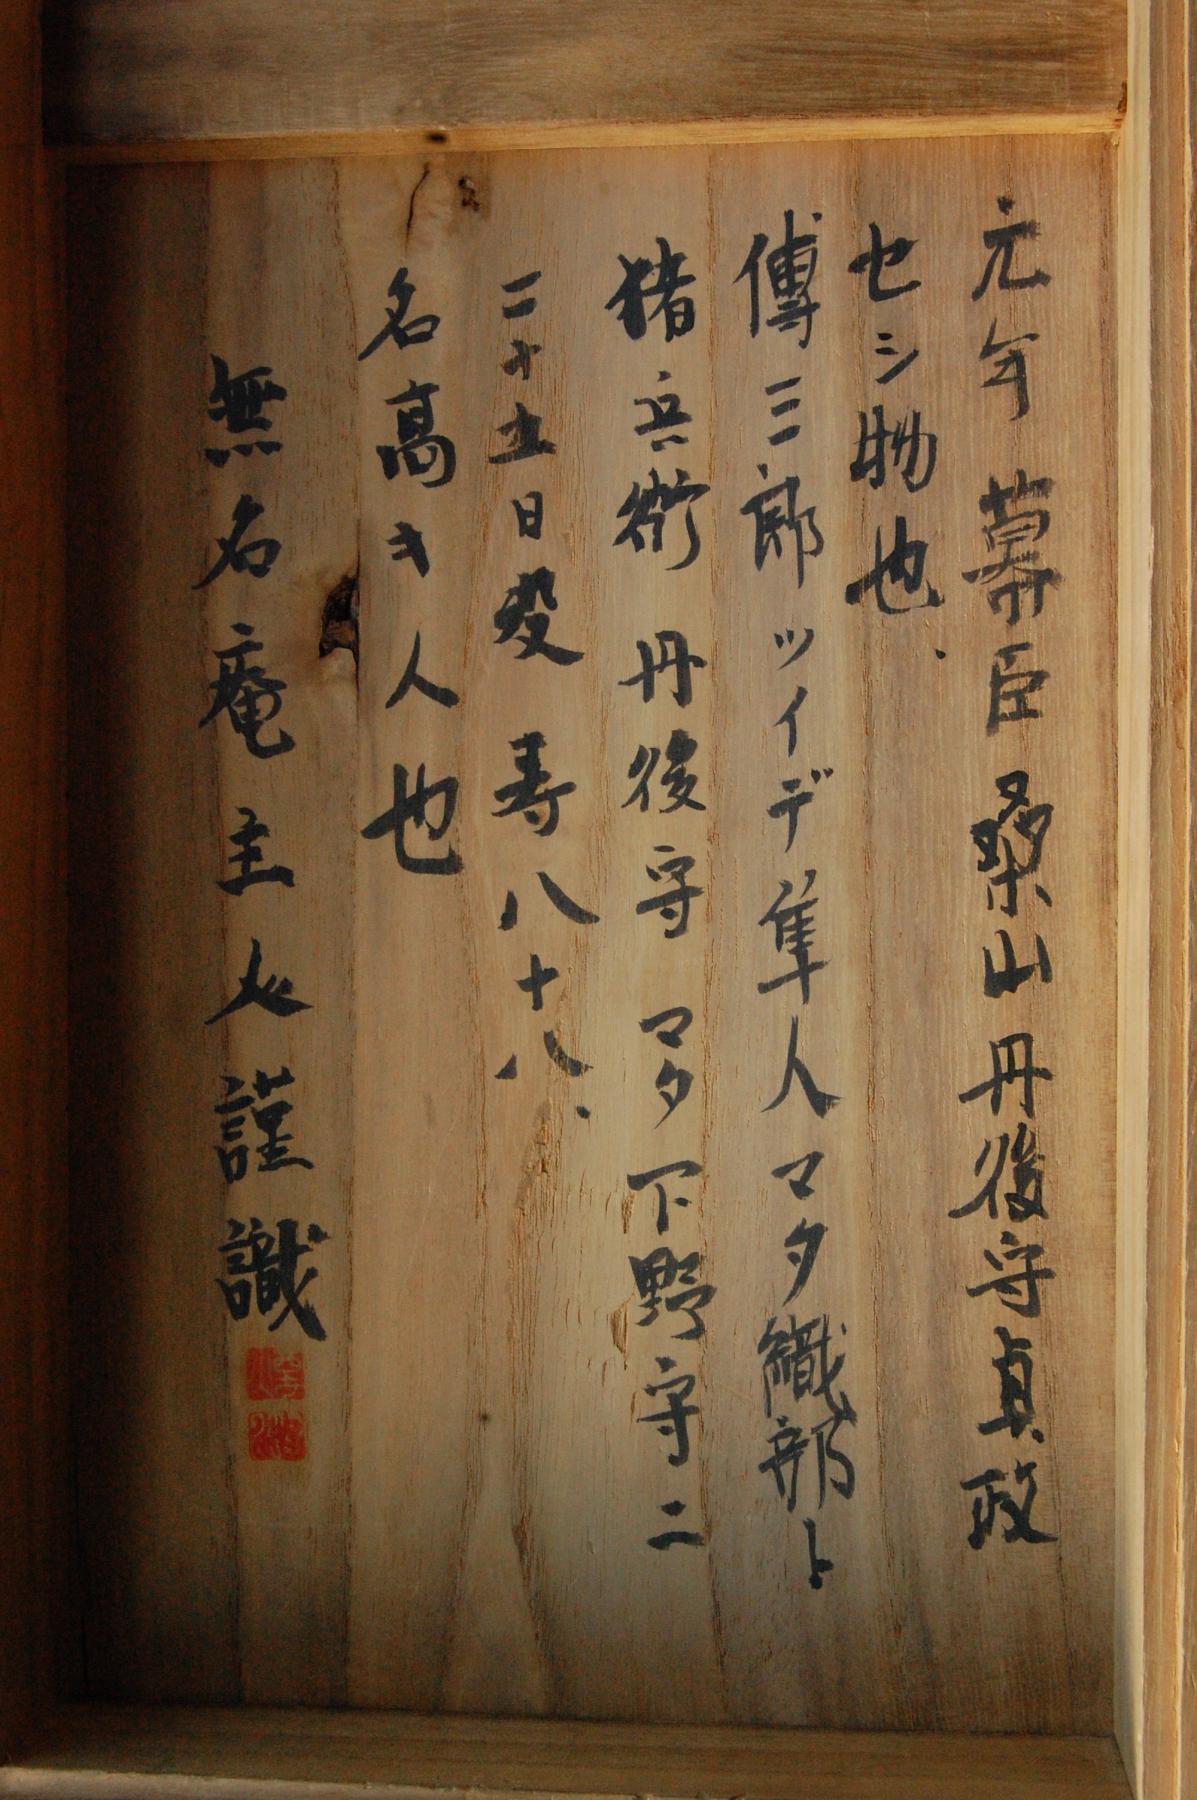 元年 幕臣 桑山丹後守貞政
セシ物也、
傳三郎ツイデ隼人マタ織部ト
猪兵衛 丹後守 マタ下野守ニ
二十五日歿 寿八十八、
名高キ人也
無名庵主人謹識